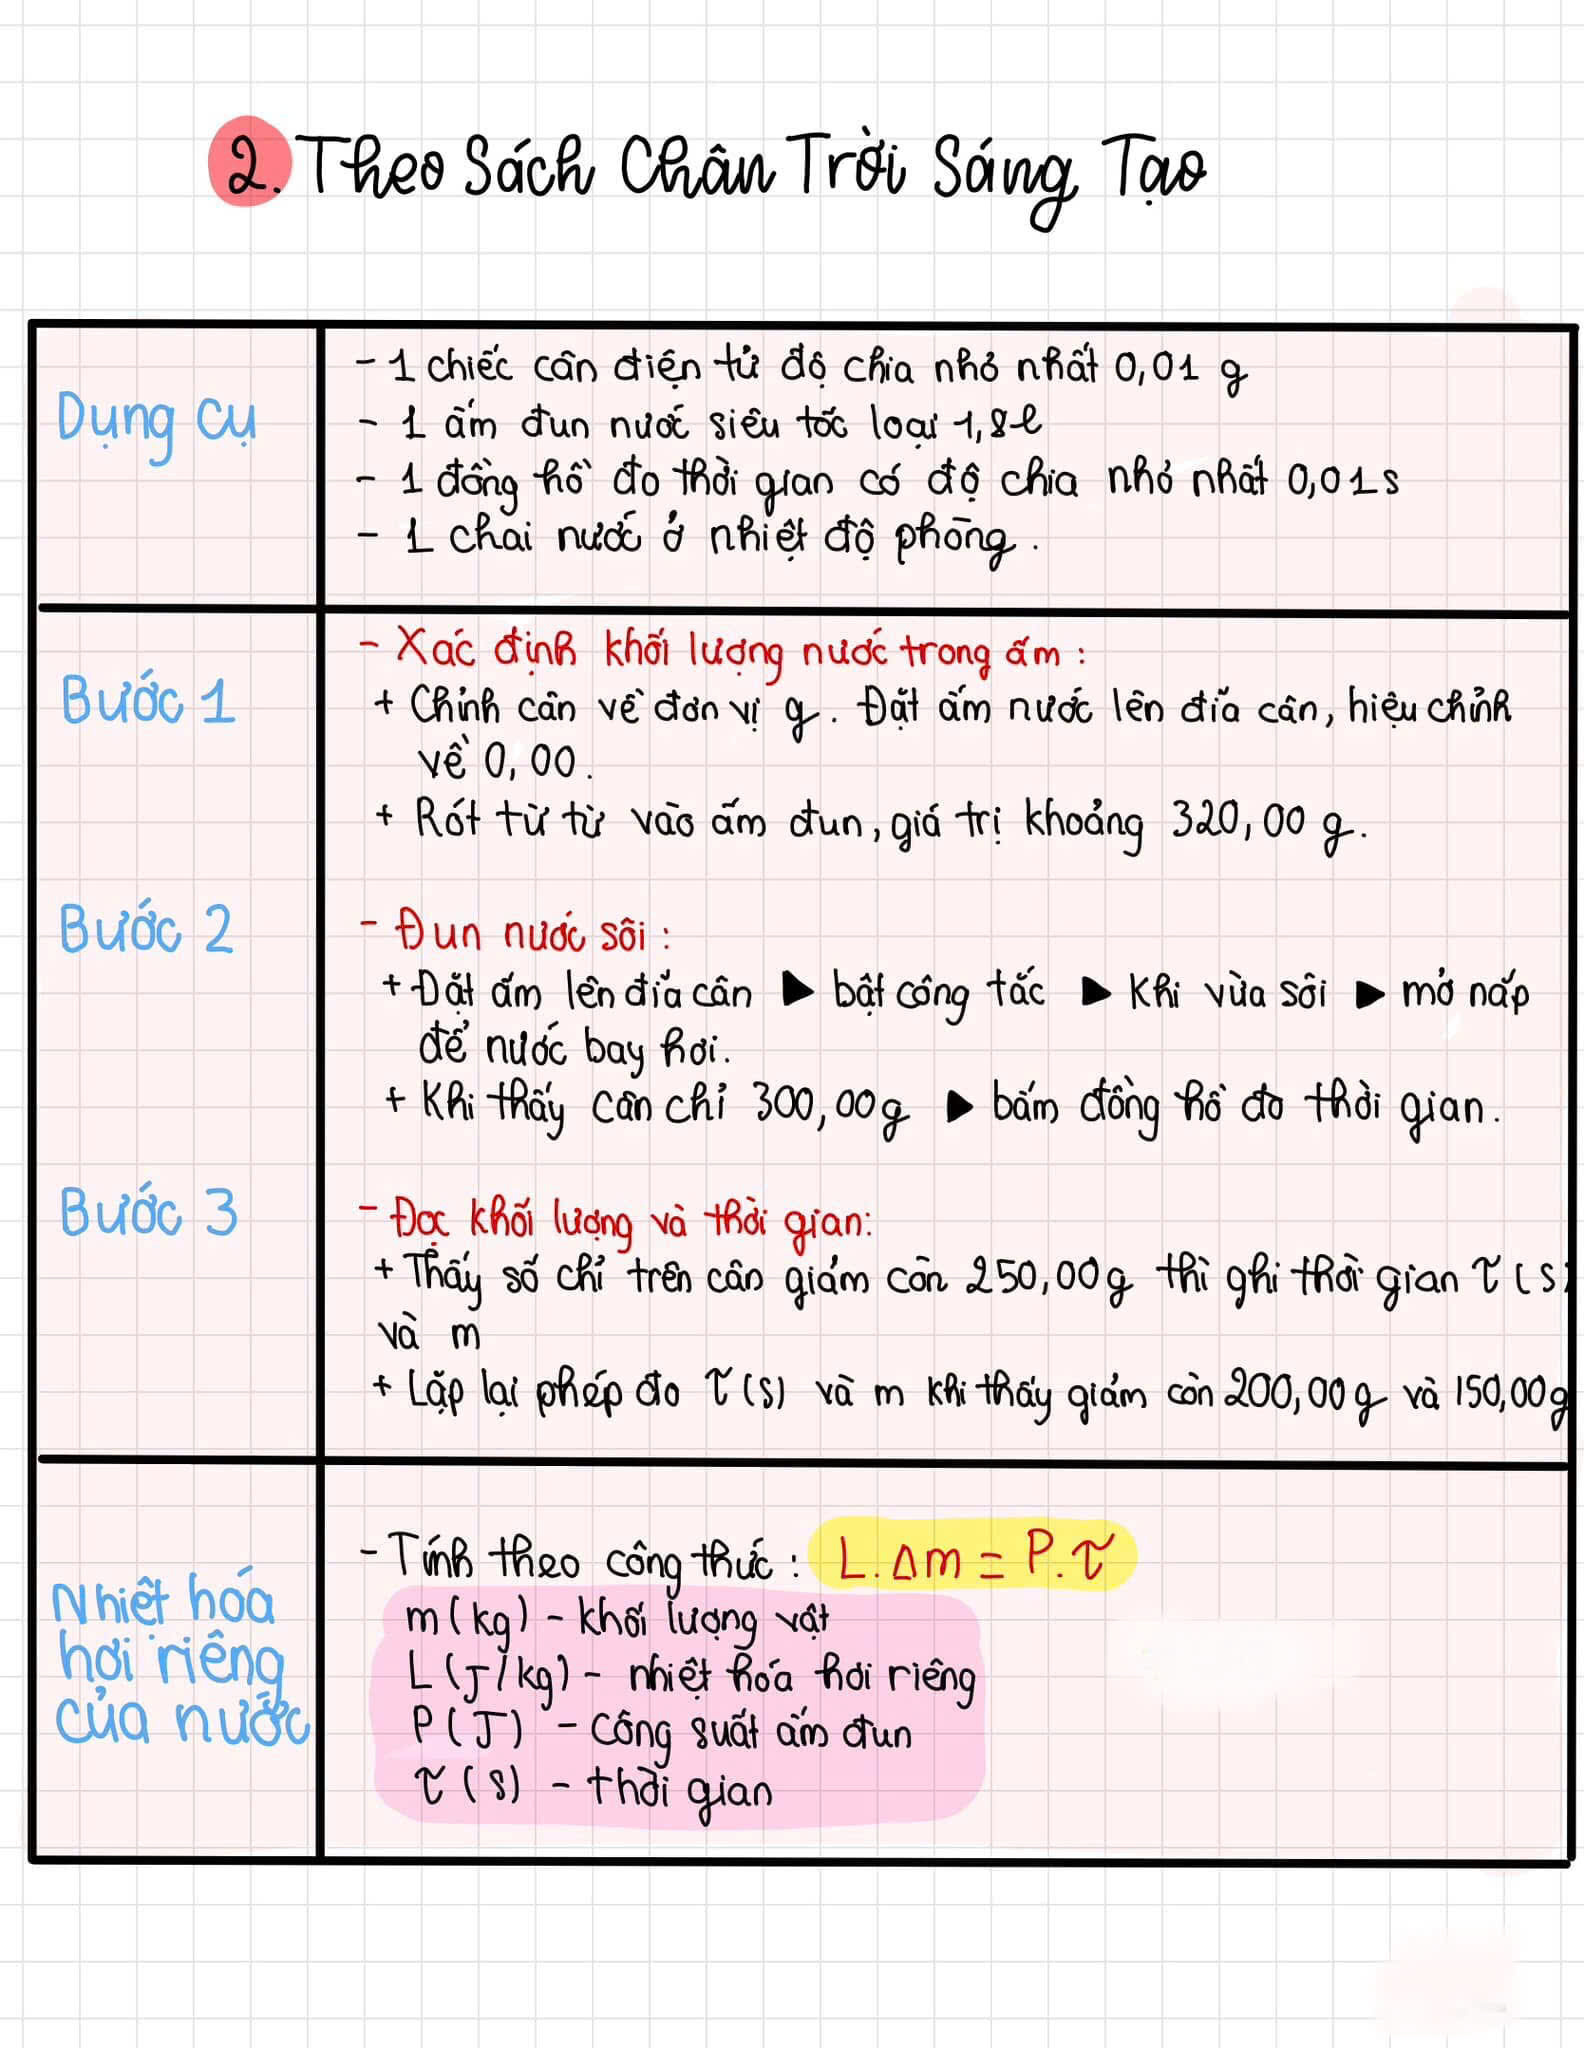 2. Theo Sách Chân Trời Sáng Tạo
Dụng cụ
- 1 chiếc cân điện tử độ chia nhỏ nhất 0,01 g
- 1 ấm đun nước siêu tốc loại 1,8l
- 1 đồng hồ đo thời gian có độ chia nhỏ nhất 0,01s
- 1 chai nước ở nhiệt độ phòng.
Bước 1
- Xác định khối lượng nước trong ấm :
+ Chỉnh cân về đơn vị g. Đặt ấm nước lên đĩa cân, hiệu chỉnh
về 0,00.
+ Rót từ từ vào ấm đun, giá trị khoảng 320,00 g.
Bước 2
- Đun nước sôi :
+ Đặt ấm lên đĩa cân ▶ bật công tắc ▶ khi vừa sôi ▶ mở nắp
để nước bay hơi.
+ Khi thấy cân chỉ 300,00g ▶ bấm đồng hồ đo thời gian.
Bước 3
- Đọc khối lượng và thời gian:
+ Thấy số chỉ trên cân giảm còn 250,00g thì ghi thời gian τ (s)
và m
+ Lặp lại phép đo τ (s) và m khi thấy giảm còn 200,00g và 150,00g
Nhiệt hóa
hơi riêng
của nước
- Tính theo công thức : L.Δm = P.τ
m (kg) - khối lượng vật
L (J/kg) - nhiệt hóa hơi riêng
P (J) - công suất ấm đun
τ (s) - thời gian